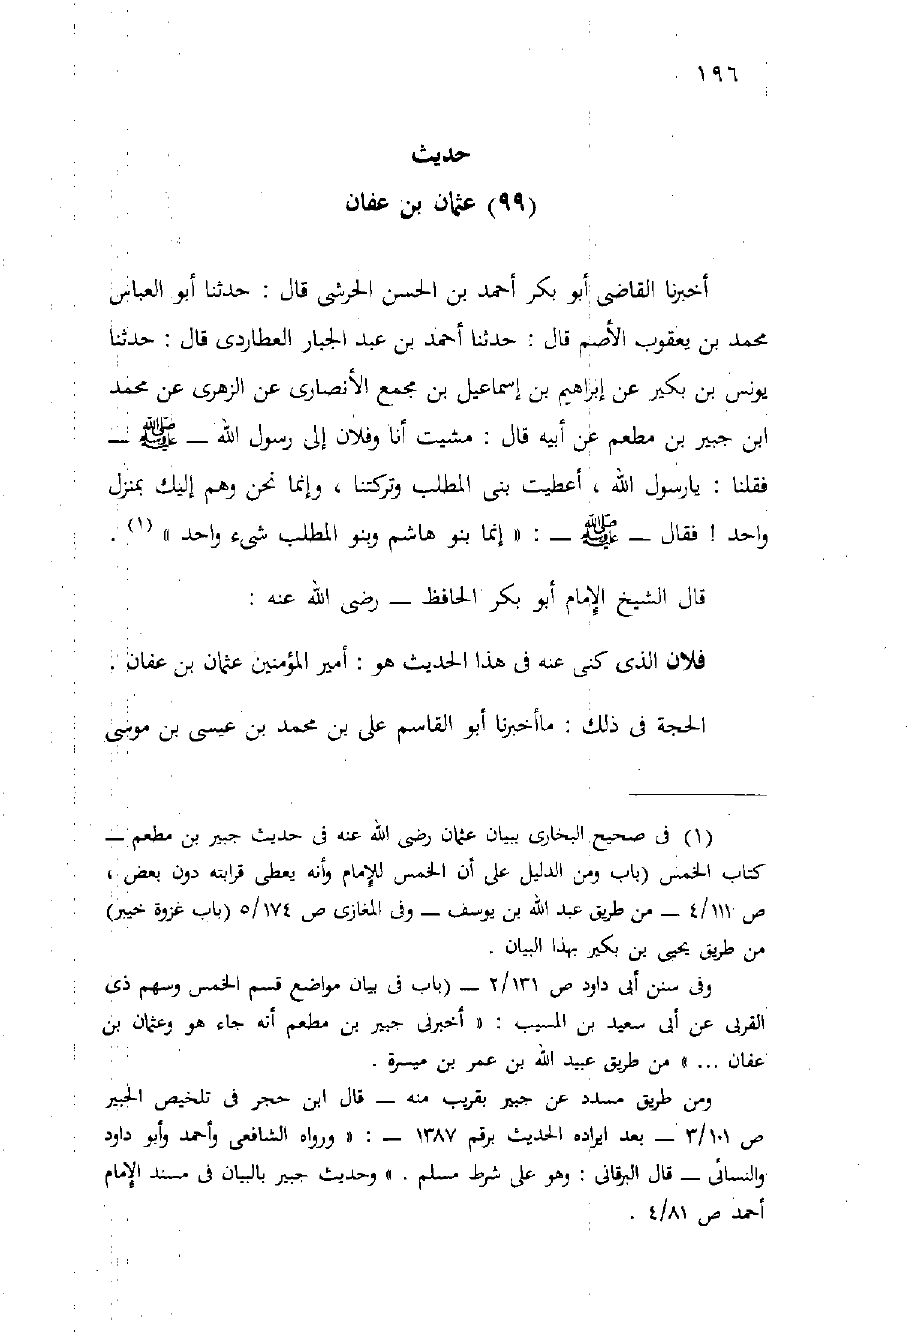 ١٩٦
حديث
(٩٩) عثمان بن عفان
أخبرنا القاضى أبو بكر أحمد بن الحسن الحرشى قال : حدثنا أبو العباس
محمد بن يعقوب الأصم قال : حدثنا أحمد بن عبد الجبار العطاردى قال : حدثنا
يونس بن بكير عن إبراهيم بن إسماعيل بن مجمع الأنصارى عن الزهرى عن محمد
ابن جبير بن مطعم عن أبيه قال : مشيت أنا وفلان إلى رسول الله — ﷺ —
فقلنا : يارسول الله ، أعطيت بنى المطلب وتركتنا ، وإنما نحن وهم إليك بمنزل
واحد ! فقال — ﷺ — : « إنما بنو هاشم وبنو المطلب شىء واحد » (١) .
قال الشيخ الإمام أبو بكر الحافظ — رضى الله عنه :
فلان الذى كنى عنه فى هذا الحديث هو : أمير المؤمنين عثمان بن عفان .
الحجة فى ذلك : ماأخبرنا أبو القاسم على بن محمد بن عيسى بن موسى
(١) فى صحيح البخارى ببيان عثمان رضى الله عنه فى حديث جبير بن مطعم —
كتاب الخمس (باب ومن الدليل على أن الخمس للإمام وأنه يعطى قرابته دون بعض ،
ص ٤/١١١ — من طريق عبد الله بن يوسف — وفى المغازى ص ٥/١٧٤ (باب غزوة خيبر)
من طريق يحيى بن بكير بهذا البيان .
وفى سنن أبى داود ص ٢/١٣١ — (باب فى بيان مواضع قسم الخمس وسهم ذى
القربى عن أبى سعيد بن المسيب : « أخبرنى جبير بن مطعم أنه جاء هو وعثمان بن
عفان ... » من طريق عبيد الله بن عمر بن ميسرة .
ومن طريق مسدد عن جبير بقريب منه — قال ابن حجر فى تلخيص الحبير
ص ٣/١٠١ — بعد ايراده الحديث برقم ١٣٨٧ — : « ورواه الشافعى وأحمد وأبو داود
والنسائى — قال البرقانى : وهو على شرط مسلم . » وحديث جبير بالبيان فى مسند الإمام
أحمد ص ٤/٨١ .